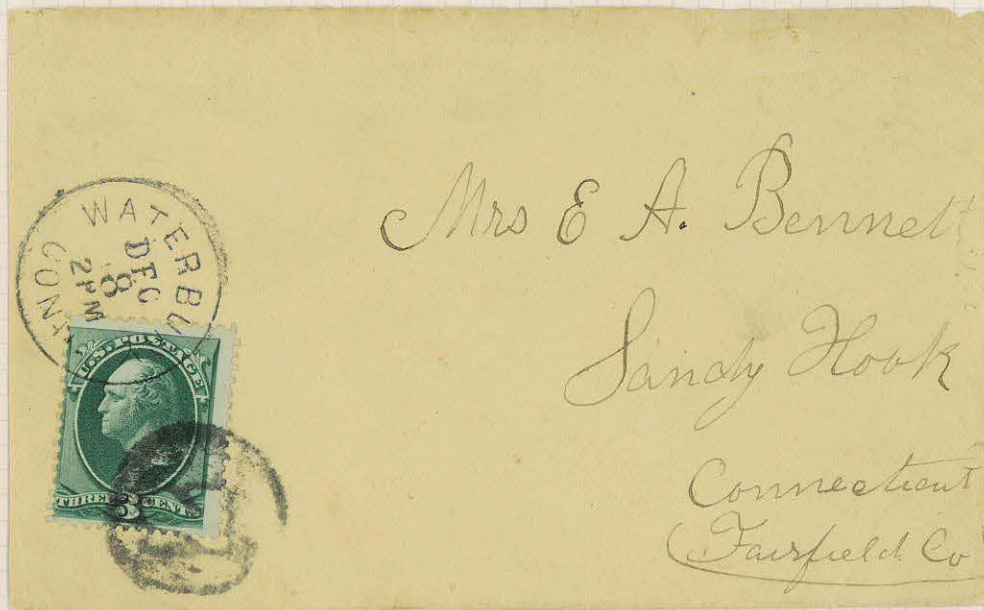 WATERBU
CONN
DEC
8
2PM
U.S. POSTAGE
THREE 3 CENTS
Mrs E A. Bennett
Sandy Hook
Connecticut
(Fairfield Co)